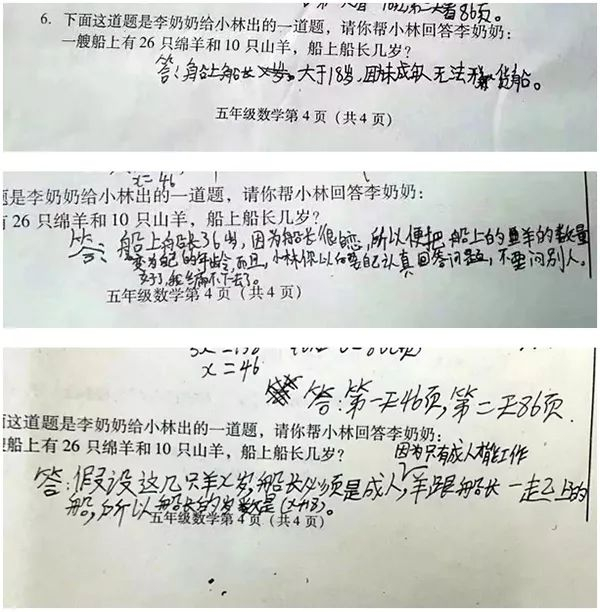 第二天看86页。
6. 下面这道题是李奶奶给小林出的一道题，请你帮小林回答李奶奶：
一艘船上有 26 只绵羊和 10 只山羊，船上船长几岁？
答：船上船长大于18岁，因未成年人无法开货船。
五年级数学第 4 页（共 4 页）
x=46
题是李奶奶给小林出的一道题，请你帮小林回答李奶奶：
有 26 只绵羊和 10 只山羊，船上船长几岁？
答：船上船长36岁，因为船长很恋，所以便把船上的羊的数量
变为自己的年龄，而且，小林你以后要自己认真回答问题，不要问别人。
好了，我编不下去了。
五年级数学第 4 页（共 4 页）
x=46
答：第一天46页，第二天86页.
面这道题是李奶奶给小林出的一道题，请你帮小林回答李奶奶：
艘船上有 26 只绵羊和 10 只山羊，船上船长几岁？
因为只有成人才能工作
答：假设这几只羊x岁，船长必须是成人，羊跟船长一起上的
船，所以船长的岁数是(x+18)。
五年级数学第 4 页（共 4 页）